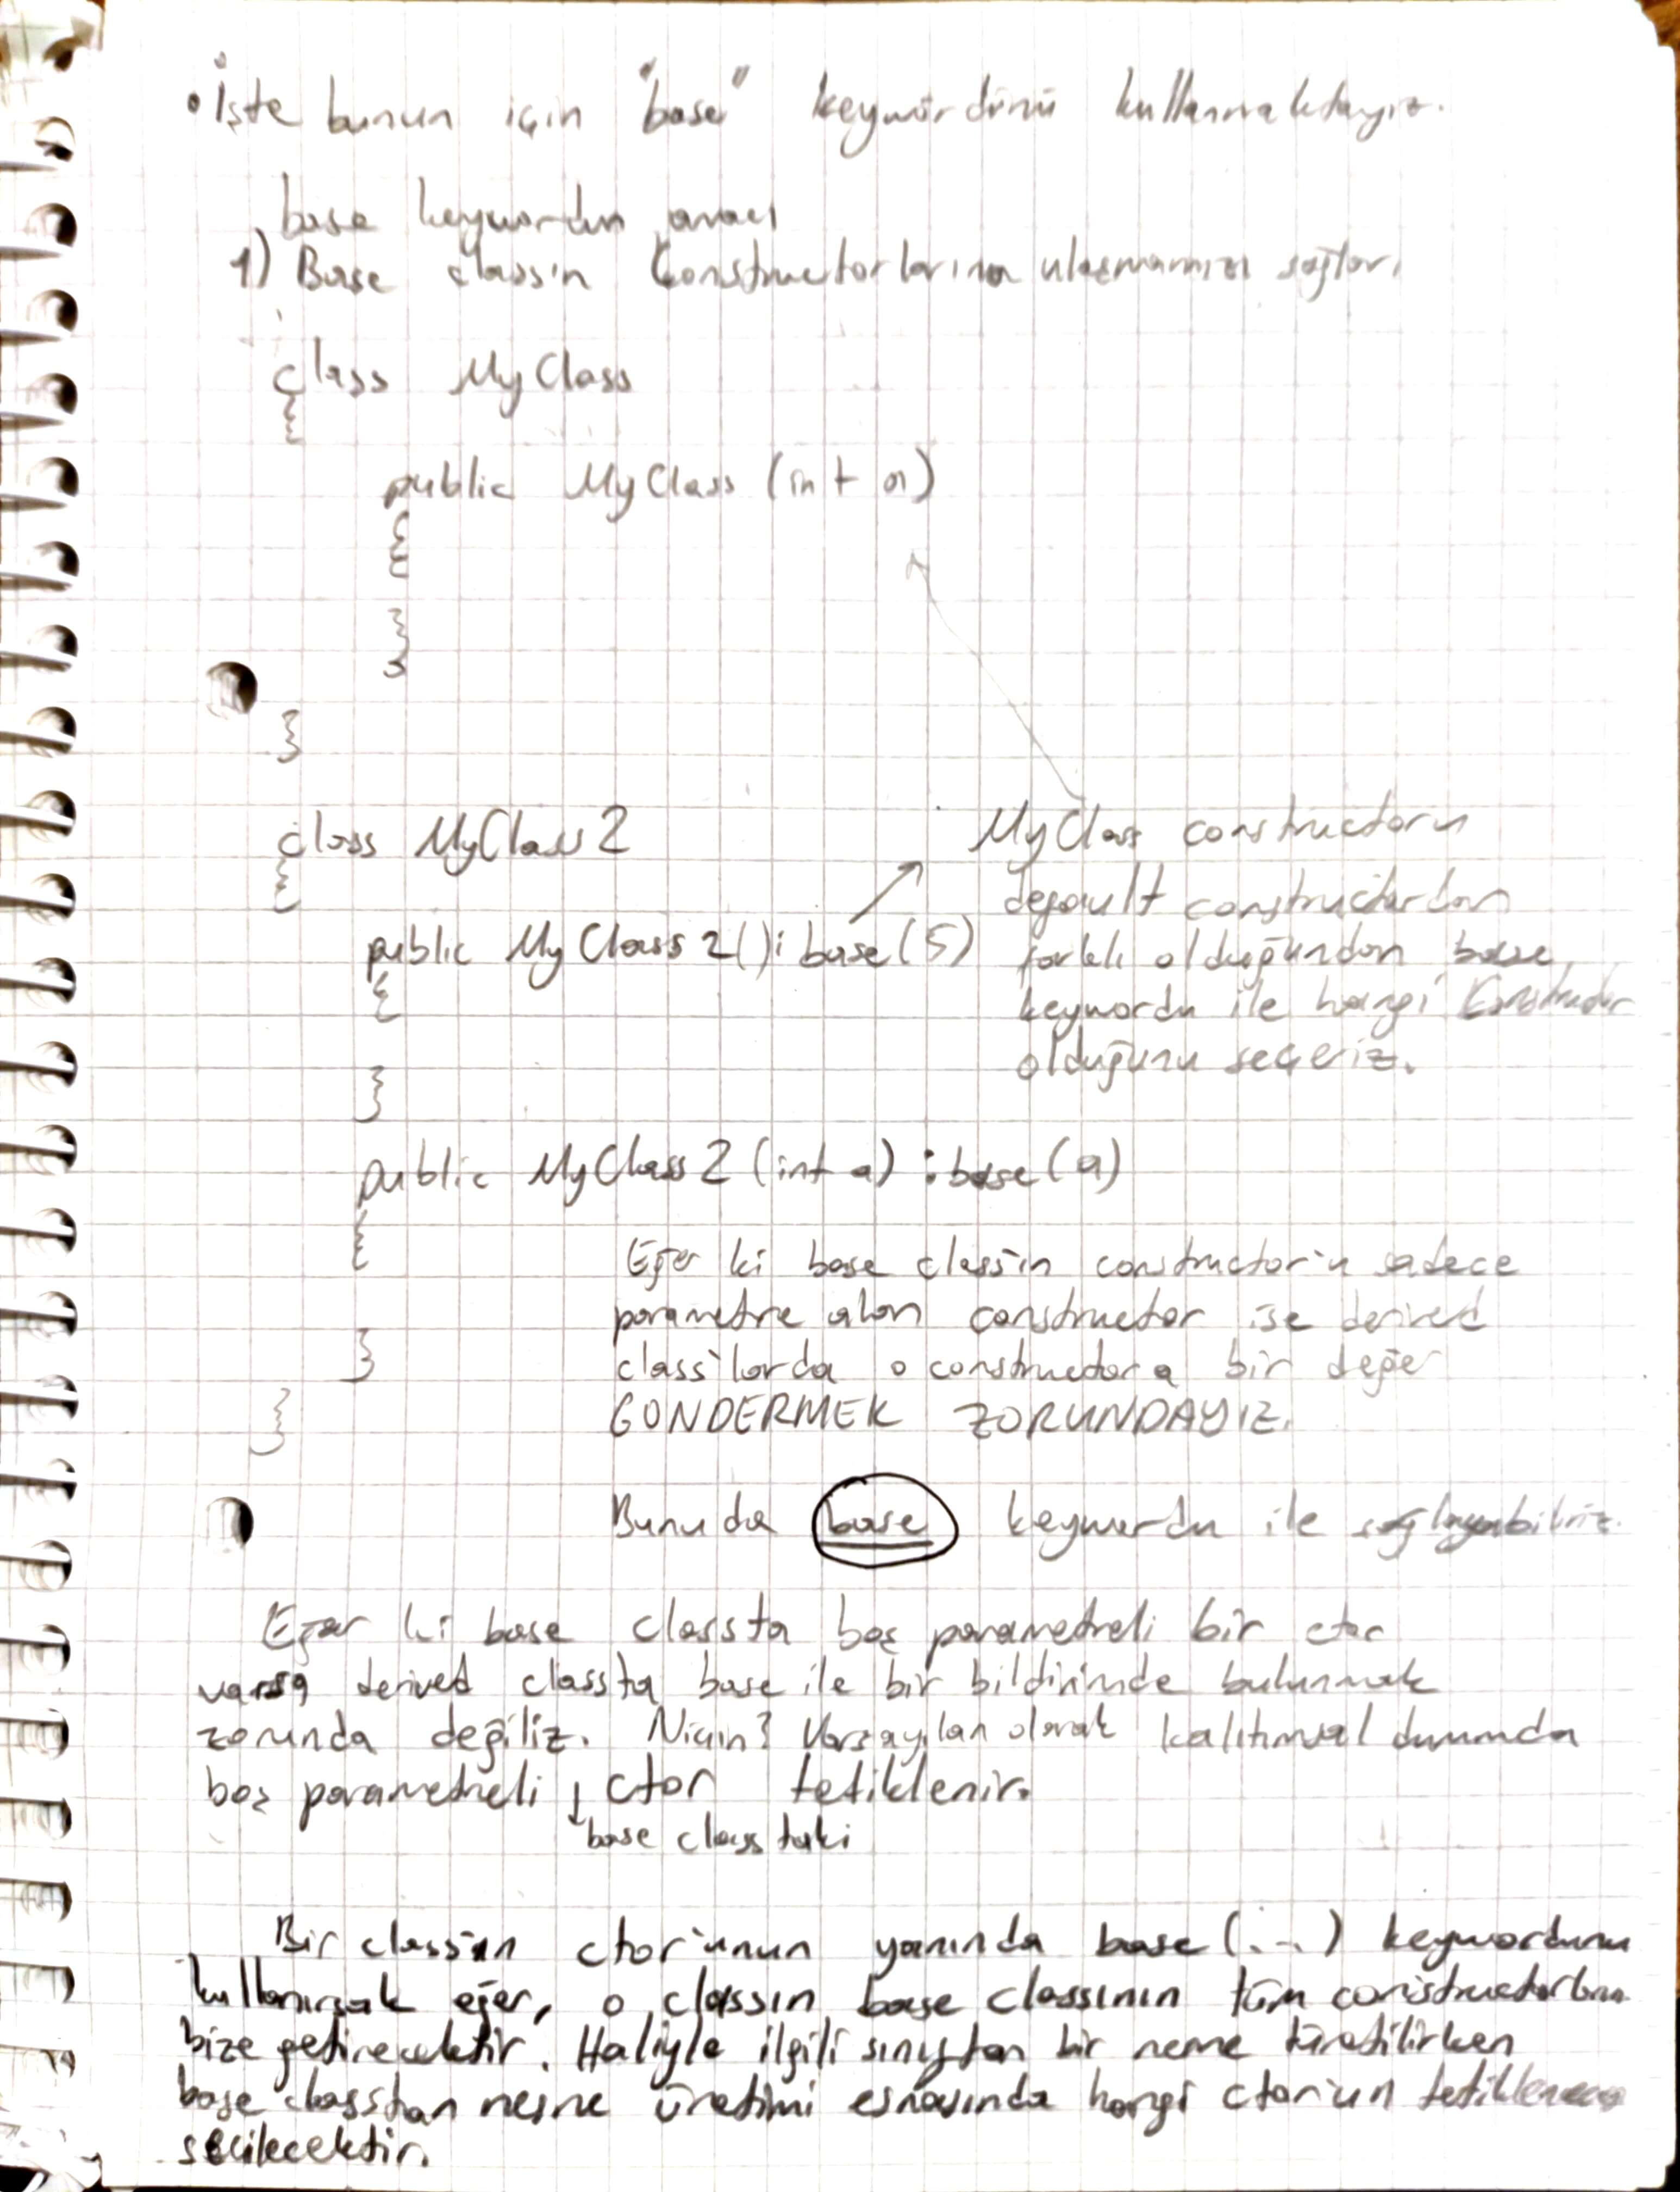 • İşte bunun için "base" keywordünü kullanmaktayız.
base keywordun amacı
1) Base class'ın Constructorlarına ulaşmamızı sağlar.
class MyClass
{
public MyClass (int a)
{
}
}
class MyClass2
{
public MyClass2(): base(5)
{
}
MyClass constructorı
default constructordan
farklı olduğundan base
keywordu ile hangi Constructor
olduğunu seçeriz.
public MyClass2 (int a) : base(a)
{
}
}
Eğer ki base class'ın constructor'u sadece
parametre alan constructor ise derived
class'larda o constructora bir değer
GÖNDERMEK ZORUNDAYIZ.
Bunu da base keywordu ile sağlayabiliriz.
Eğer ki base classta boş parametreli bir ctor
varsa derived classta base ile bir bildirimde bulunmak
zorunda değiliz. Niçin? Varsayılan olarak kalıtımsal durumda
boş parametreli ↓ ctor tetiklenir.
base classtaki
Bir class'ın ctor'unun yanında base(...) keywordunu
kullanırsak eğer, o classın base classının tüm constructorlarını
bize getirecektir. Haliyle ilgili sınıftan bir nesne üretilirken
base classtan nesne üretimi esnasında hangi ctor'un
seçilecektir.